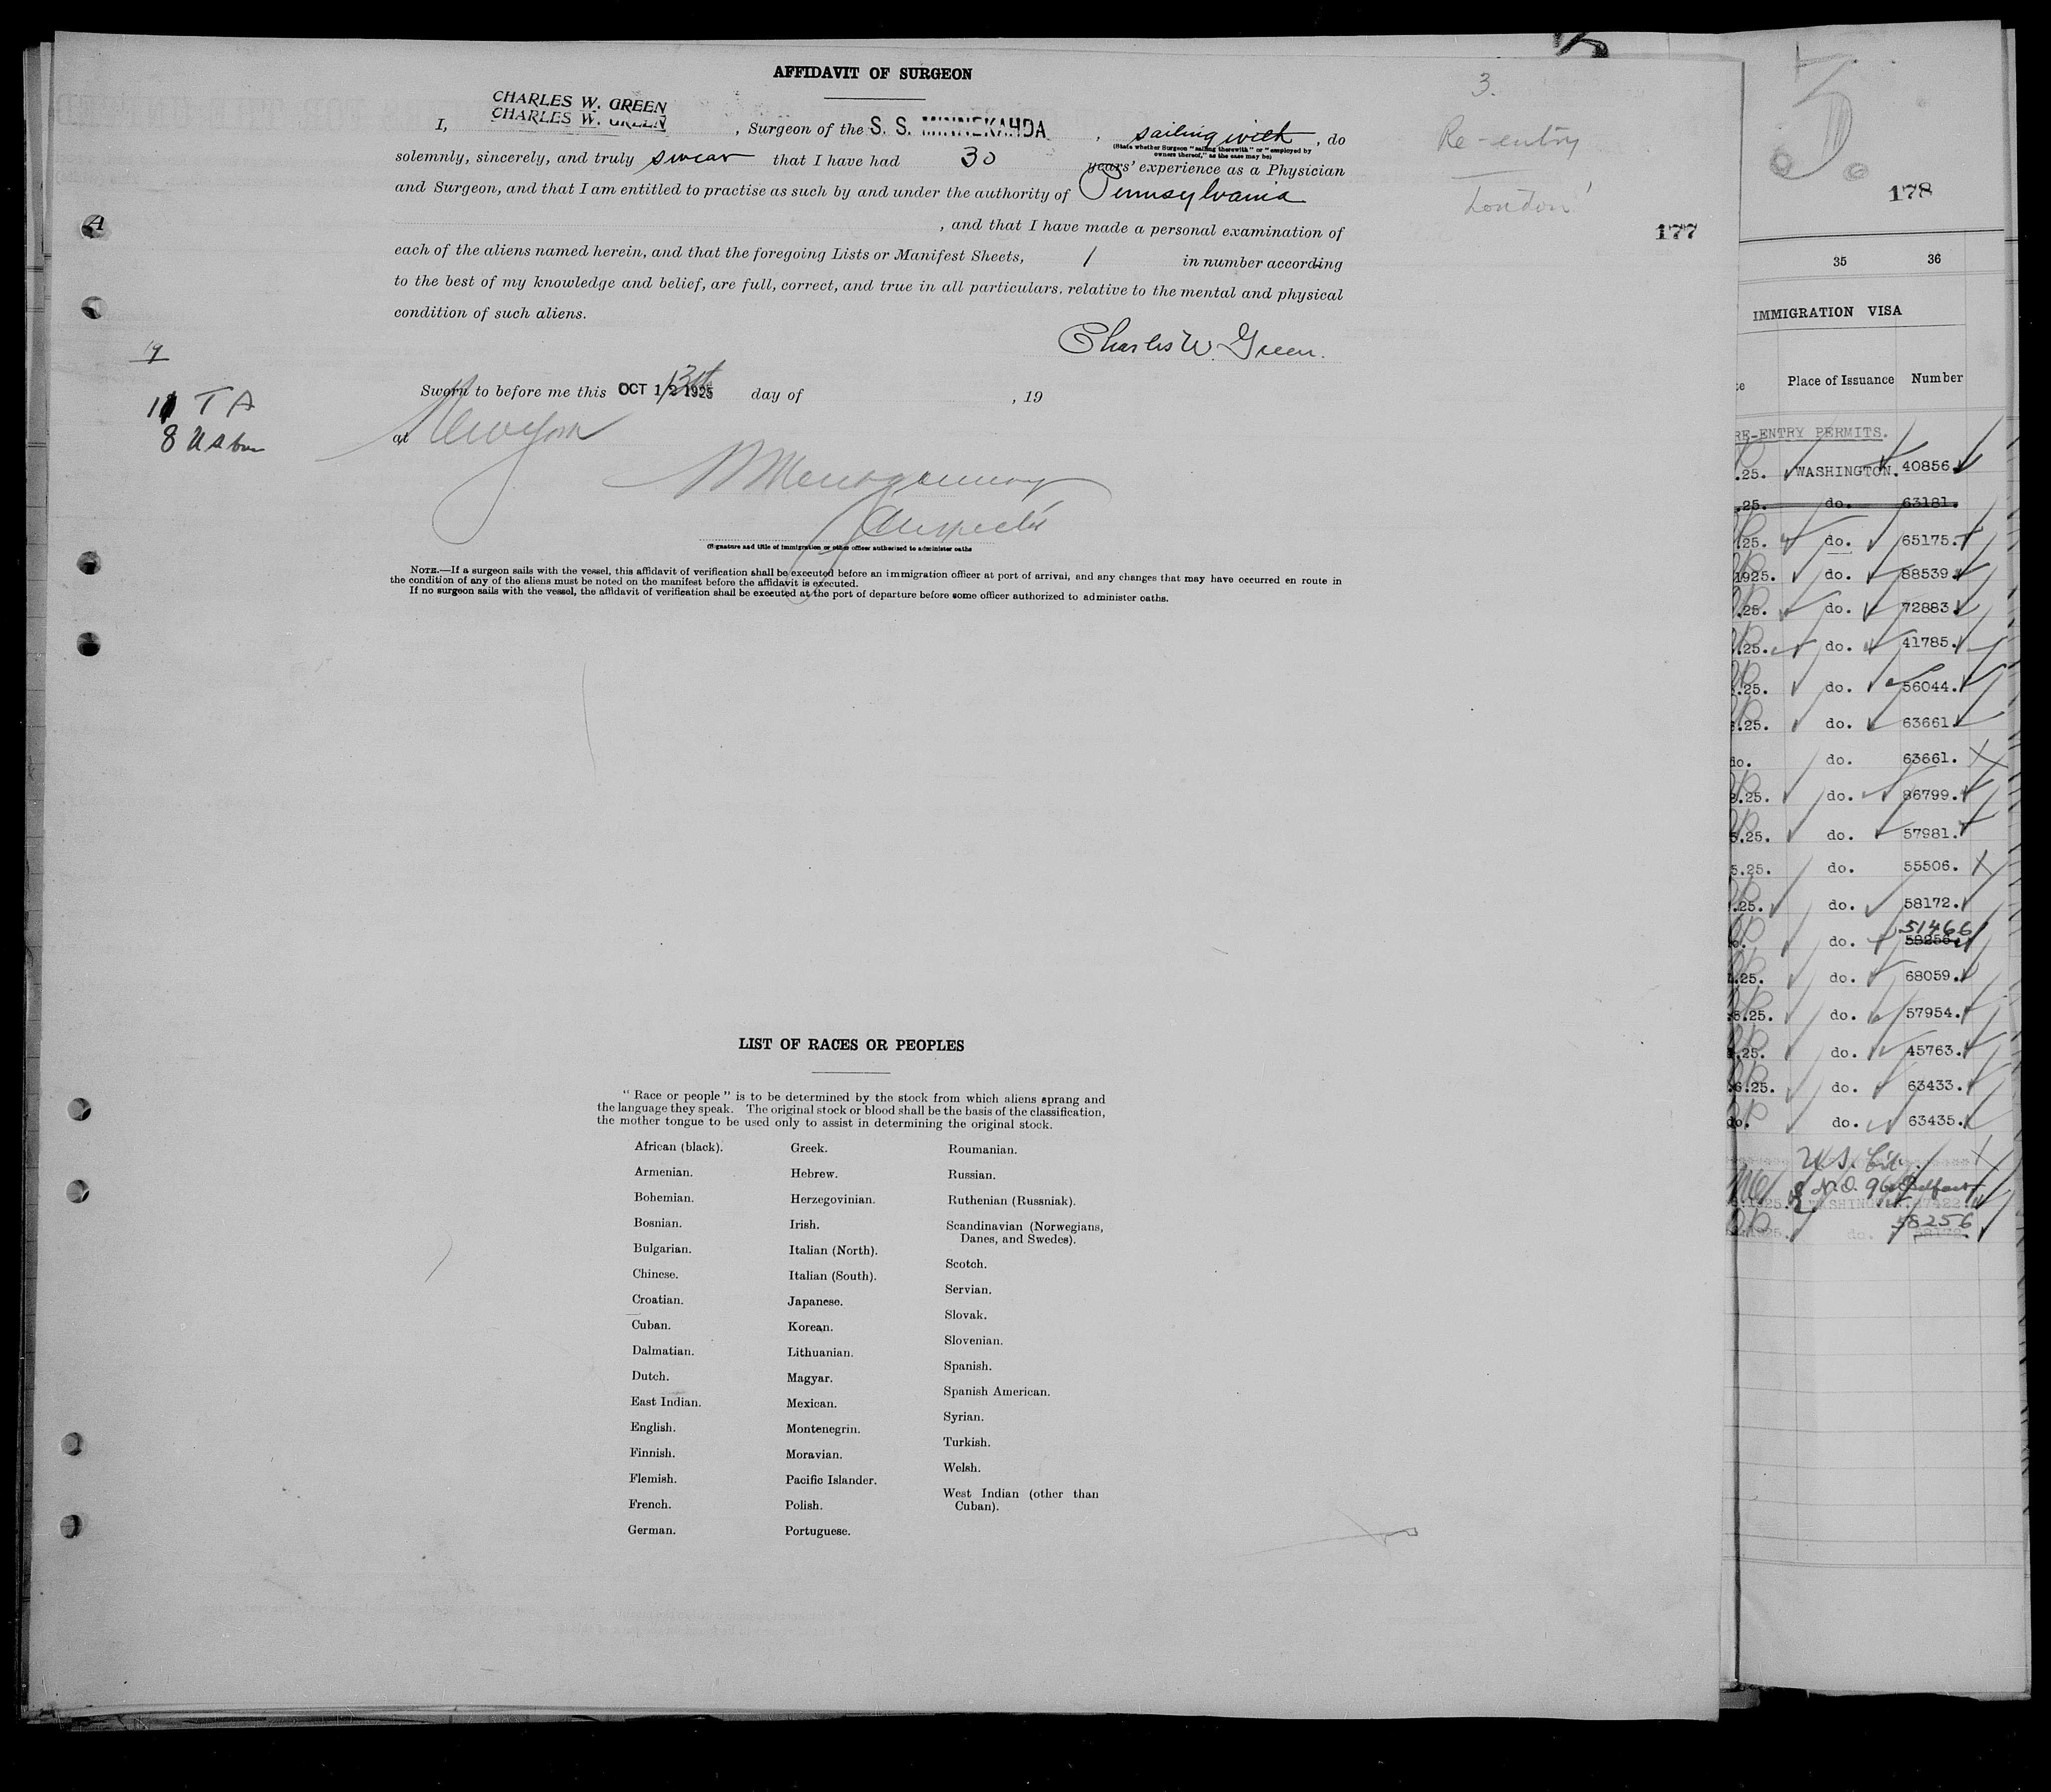 AFFIDAVIT OF SURGEON
3.
CHARLES W. GREEN
CHARLES W. GREEN
I, , Surgeon of the S. S. MINNEKAHDA , sailing with , do
(State whether Surgeon "sailing therewith" or "employed by
owners thereof," as the case may be)
solemnly, sincerely, and truly swear that I have had 30 years' experience as a Physician
and Surgeon, and that I am entitled to practise as such by and under the authority of Pennsylvania
, and that I have made a personal examination of
each of the aliens named herein, and that the foregoing Lists or Manifest Sheets, 1 in number according
to the best of my knowledge and belief, are full, correct, and true in all particulars, relative to the mental and physical
condition of such aliens.
Charles W. Green.
Sworn to before me this OCT 12 1925 13th day of , 19
at New York
Montgomery
Inspector
(Signature and title of immigration or other officer authorized to administer oaths
NOTE.—If a surgeon sails with the vessel, this affidavit of verification shall be executed before an immigration officer at port of arrival, and any changes that may have occurred en route in
the condition of any of the aliens must be noted on the manifest before the affidavit is executed.
If no surgeon sails with the vessel, the affidavit of verification shall be executed at the port of departure before some officer authorized to administer oaths.
Re-entry
London
177
A
19
11 T A
8 USbn
LIST OF RACES OR PEOPLES
"Race or people" is to be determined by the stock from which aliens sprang and
the language they speak. The original stock or blood shall be the basis of the classification,
the mother tongue to be used only to assist in determining the original stock.
African (black).
Armenian.
Bohemian.
Bosnian.
Bulgarian.
Chinese.
Croatian.
Cuban.
Dalmatian.
Dutch.
East Indian.
English.
Finnish.
Flemish.
French.
German.
Greek.
Hebrew.
Herzegovinian.
Irish.
Italian (North).
Italian (South).
Japanese.
Korean.
Lithuanian.
Magyar.
Mexican.
Montenegrin.
Moravian.
Pacific Islander.
Polish.
Portuguese.
Roumanian.
Russian.
Ruthenian (Russniak).
Scandinavian (Norwegians,
Danes, and Swedes).
Scotch.
Servian.
Slovak.
Slovenian.
Spanish.
Spanish American.
Syrian.
Turkish.
Welsh.
West Indian (other than
Cuban).
178
35 36
IMMIGRATION VISA
te Place of Issuance Number
RE-ENTRY PERMITS.
.25. WASHINGTON. 40856.
.25. do. 63181.
.25. do. 65175.
1925. do. 88539.
.25. do. 72883.
.25. do. 41785.
.25. do. 56044.
.25. do. 63661
do. do. 63661.
.25. do. 86799.
5.25. do. 57981.
5.25. do. 55506.
.25. do. 58172.
51466
o. do. 58256
.25. do. 68059.
5.25. do. 57954.
.25. do. 45763.
6.25. do. 63433.
do. do. 63435.
U.S. Cit.
Belfast
.1925. WASHINGTON
58256
.1925. do. 58172.